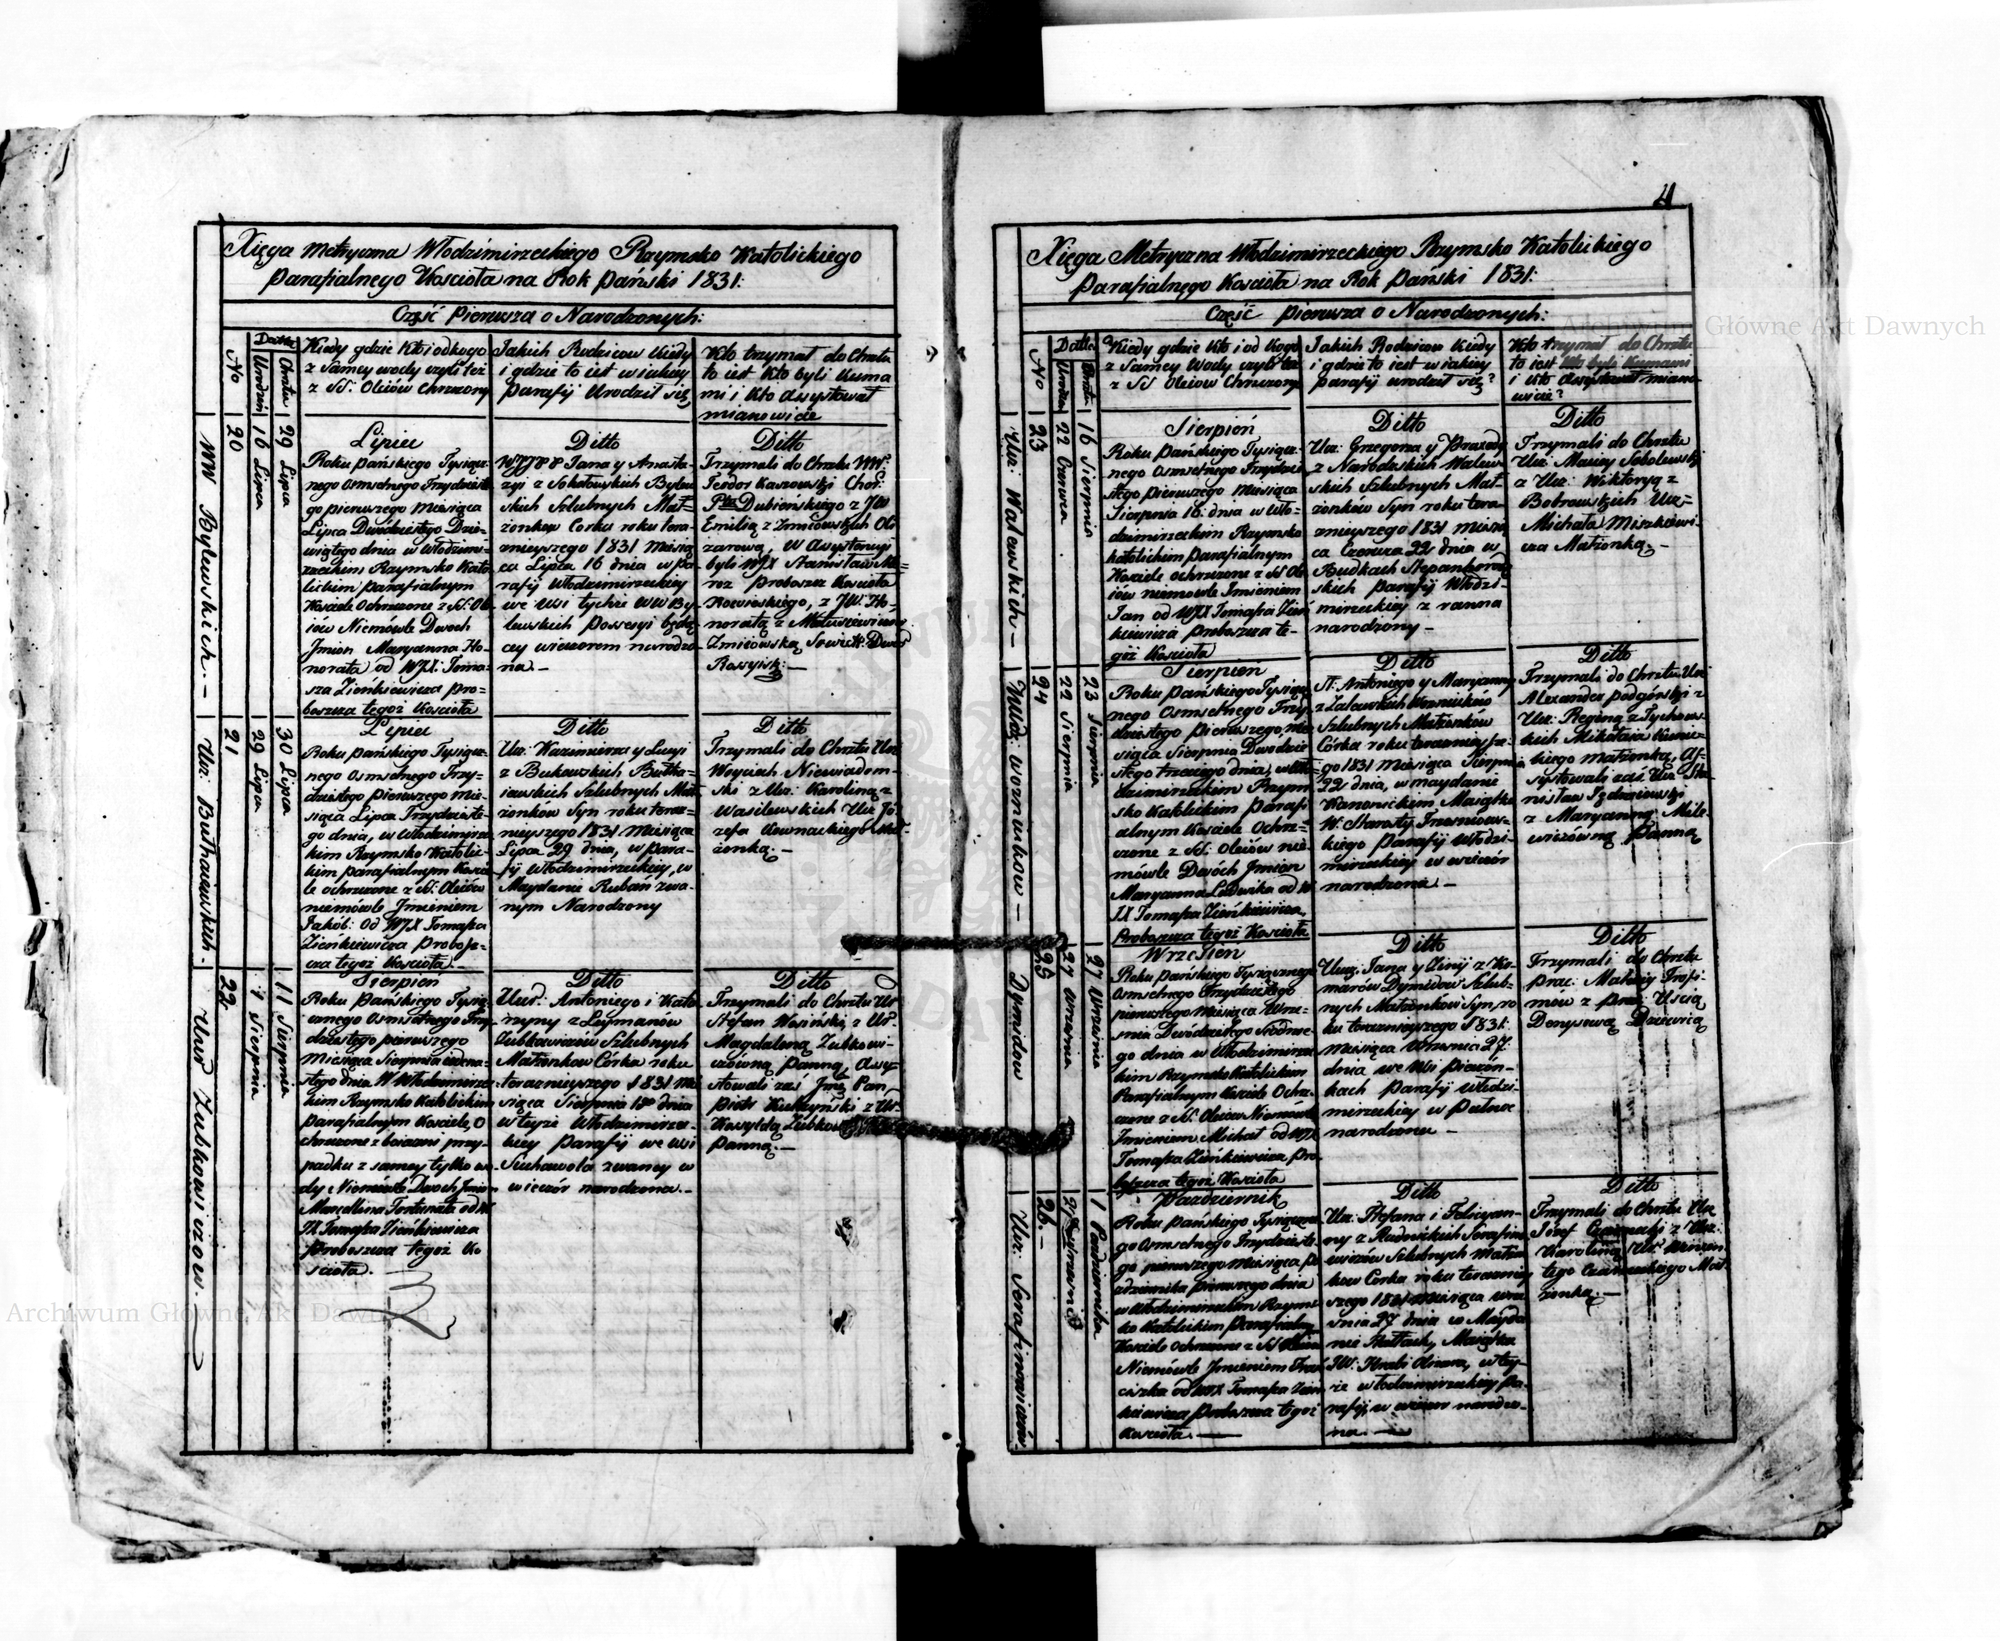 Xięga Metryczna Włodzimirzeckiego Rzymsko Katolickiego
Parafialnego Kościoła na Rok Pański 1831:
Część Pierwsza o Narodzonych:
No
Datta
Urodzin
Chrztu
Kiedy gdzie Kto i od kogo
z Samey wody czyli też
z SS: Oleiów Chrzczony
Jakich Rodzicow Kiedy
i gdzie to iest w iakiey
Parafij Urodził się
Kto trzymał do Chrztu
to iest Kto byli Kuma
mi i Kto Assystował
mianowicie
WW Bylewskich. —
20
16 Lipca
29 Lipca
Lipiec
Roku Pańskiego Tysiącz-
nego Osmsetnego Trzydzieste
go pierwszego Miesiąca
Lipca Dwudziestego Dzie-
wiątego dnia w Włodzimi-
rzeckim Rzymsko Kato
lickim parafialnym
Kościele Ochrzczone z SS: Ole
iów Niemówle Dwoch
Jmion Maryanna Ho-
norata od WJX: Toma-
sza Zieńkiewicza pro-
boszcza tegoż Kościoła
Ditto
Jana y Anasta-
zyi z Sokołowskich Bylew
skich Szlubnych Mał-
żonkow Corka roku tera-
znieyszego 1831 Miesią
ca Lipca 16 dnia w pa
rafij Włodzimirzeckiey
we Wsi tychże WW By-
lewskich Possesyi będą
cey wieczorem narodzo
na. —
Ditto
Trzymali do Chrztu WW:
Teodor Kaszowski Chor:
Ptu Dubieńskiego z JW
Emilią z Zmiiowskich Ol
zarową, W Assystencyi
byli WJX Stanisław
proboszcz Kościoła
z JW: Ho-
noratą z Mateusiewiczow
Zmiiowską Sowiet: Dwo
Rossyisk: —
Urz: Buthaiewskich. —
21
29 Lipca
30 Lipca
Lipiec
Roku Pańskiego Tysiącz-
nego Osmsetnego Trzy-
dziestego pierwszego Mie-
siąca Lipca Trzydzieste-
go dnia, w Włodzimirzec
kim Rzymsko Katolic-
kim parafialnym Koście
le ochrzczone z SS: Oleiów
niemówle Jmieniem
Jakób: Od WJX Tomasza
Zieńkiewicza probosz-
cza tegoż Kościoła. —
Ditto
Urz: Kazimierza y Lucyi
z Bukowskich Butha-
iewskich Szlubnych Mał
żonków Syn roku teraz-
nieyszego 1831 Miesiąca
Lipca 29 dnia, w para-
fij Włodzimirzeckiey, w
Maydanie Rubań zwa-
nym Narodzony
Ditto
Trzymali do Chrztu Urz
Woyciech Niewiadom-
ski z Urz: Karoliną z
Wasilewskich Urz Jó-
zefa Kownackiego Mał-
żonką. —
Urod Zubkowiczow. —
22
1 Sierpnia
11 Sierpnia
Sierpień
Roku Pańskiego Tysią
cznego Osmsetnego Trzy
dziestego pierwszego
Miesiąca Sierpnia iedena-
stego dnia W Włodzimirzec
kim Rzymsko Katolickim
Parafialnym Kościele, O
chrzczone z boiaźni przy-
padku z samey tylko wo-
dy, Niemówle Dwoch Jmion
Marcellina Fortunata od W
JX Tomasza Zieńkiewicza
Proboszcza tegoż Ko
ścioła. —
Ditto
Urod: Antoniego i Kata
rzyny z Szymanów
Zubkowiczów Szlubnych
Małżonkow Córka roku
teraznieyszego 1831 Mie
siąca Sierpnia dnia
w teyże Włodzimirzec-
kiey Parafij we wsi
Suchowola zwaney w
wieczór narodzona. —
Ditto
Trzymali do Chrztu Ur
Stefan Wosiński, z Ur.
Magdaleną Zubkowi-
czówną Panną, Assy-
stowali zaś Jmć Pan
Piotr Kuczyński z Ur.
Panną. —
4
Xięga Metryczna Włodzimirzeckiego Rzymsko Katolickiego
Parafialnego Kościoła na Rok Pański 1831:
Część Pierwsza o Narodzonych:
No
Datta
Urodzin
Chrztu
Kiedy gdzie Kto i od Kogo
z Samey Wody czyli też
z SS Oleiow Chrzczony
Jakich Rodzicow Kiedy
i gdzie to iest w iakiey
parafij urodził się?
Kto trzymał do Chrztu
to iest Kto byli Kumami
i Kto Assystował miano-
wicie?
Urz: Walewskich —
23
22 Czerwca
16 Sierpnia
Sierpień
Roku Pańskiego Tysiącz-
nego Osmsetnego Trzydzie
stego pierwszego Miesiąca
Sierpnia 16. dnia w Wło-
dzimirzeckim Rzymsko
katolickim parafialnym
Kościele ochrzczone z SS Ole
iow niemowle Jmieniem
Jan od WJX Tomasza Zień
kiewicza Proboszcza te-
goż Kościoła
Ditto
Urz: Grzegorza y
z Narodzkich Walew-
skich Szlubnych Mał-
żonków Syn roku tera-
znieyszego 1831 Miesią
ca Czerwca 22 dnia w
Budkach
skich Parafij Włodzi-
mirzeckiey z ranna
narodzony —
Ditto
Trzymali do Chrztu
Urz: Maciey Sobolewski
z Urz: Wiktoryą z
Bobrowskich Urz-
Michała Miszkiewi-
cza Małżonką. —
Uwdz: Woznuikow —
24
22 Sierpnia
23 Sierpnia
Sierpień
Roku Pańskiego Tysiącz
nego Osmsetnego Trzy-
dziestego pierwszego, mie
siąca Sierpnia Dwudzie
stego trzeciego dnia, w Wło-
dzimirzeckim Rzym
sko Katolickim Parafi
alnym Kościele Ochrz-
czone z SS. Oleiów nie
mówle Dwóch Jmion
Maryanna Ludwika od W
JX Tomasza Zieńkiewicza
Proboszcza tegoż Kościoła
Ditto
Antoniego y Maryanny
z Zalewskich
Szlubnych Małżonków
Córka roku teraznieysze-
go 1831 Miesiąca Sierpnia
22 dnia, w maydanie
Kanonickim Maiątku
W: Starosty
kiego Parafij Włodzi-
mirzeckiey w wieczór
narodzona. —
Ditto
Trzymali do Chrztu Urz
Alexander Podgórski z
Urz: Reginą z Tychows-
kich Mikołaia
kiego małżonką, As-
systowali zaś Urz Sta
nisław
z Maryanną Mile-
wiczówną Panną
Dymidow
25
27 Wrzesnia
27 Wrzesnia
Wrzesień
Roku Pańskiego Tysiącznego
Osmsetnego Trzydziestego
pierwszego Miesiąca Wrze-
snia Dwudziestego Siódme-
go dnia w Włodzimirzec
kim Rzymsko Katolickim
Parafialnym Kościele Ochrz-
czone z SS. Oleiów Niemówle
Jmieniem Michał od WJX
Tomasza Zieńkiewicza Pro
boszcza tegoż Kościoła
Ditto
Jana y z Ko-
marów Dymidów Szlub-
nych Małżonków Syn, ro
ku teraznieyszego 1831.
Miesiąca Wrzesnia 27
dnia we Wsi
kach Parafij Włodzi-
mirzeckiey w Pułnoc
narodzony —
Ditto
Trzymali do Chrztu
Prac: Matwiey Trofi-
mow z Prac: Uscią
Denysową Dziewicą
Urz: Serafinowiczów
26. —
27 Wrzesnia
1 Pazdziernika
Pazdziernik
Roku Pańskiego Tysiączne
go Osmsetnego Trzydzieste
go pierwszego Miesiąca Pa
zdziernika pierwszego dnia
w Włodzimirzeckim Rzyms
ko Katolickim Parafialnym
Kościele Ochrzczone z SS Oleiów
Niemówle Jmieniem Fran
ciszka od WJX Tomasza Zień
kiewicza Proboszcza tegoż
Kościoła. —
Ditto
Urz: Stefana i Felicyan-
ny z Rudowskich Serafino
wiczów Szlubnych Małżon
ków Corka roku terazniey
szego 1831 Miesiąca wrze
śnia 27 dnia w Mayda
nie Hutach, Maiątku
JW: Hrabi Olizara, w tey-
że Włodzimirzeckiey Pa-
rafij, w wieczor narodzo-
na. —
Ditto
Trzymali do Chrztu Urz
Józef Czarnecki z Urz:
Karoliną Urz. Wincen
tego Czarneckiego Mał-
żonką. —
Archiwum Główne Akt Dawnych
Archiwum Główne Akt Dawnych